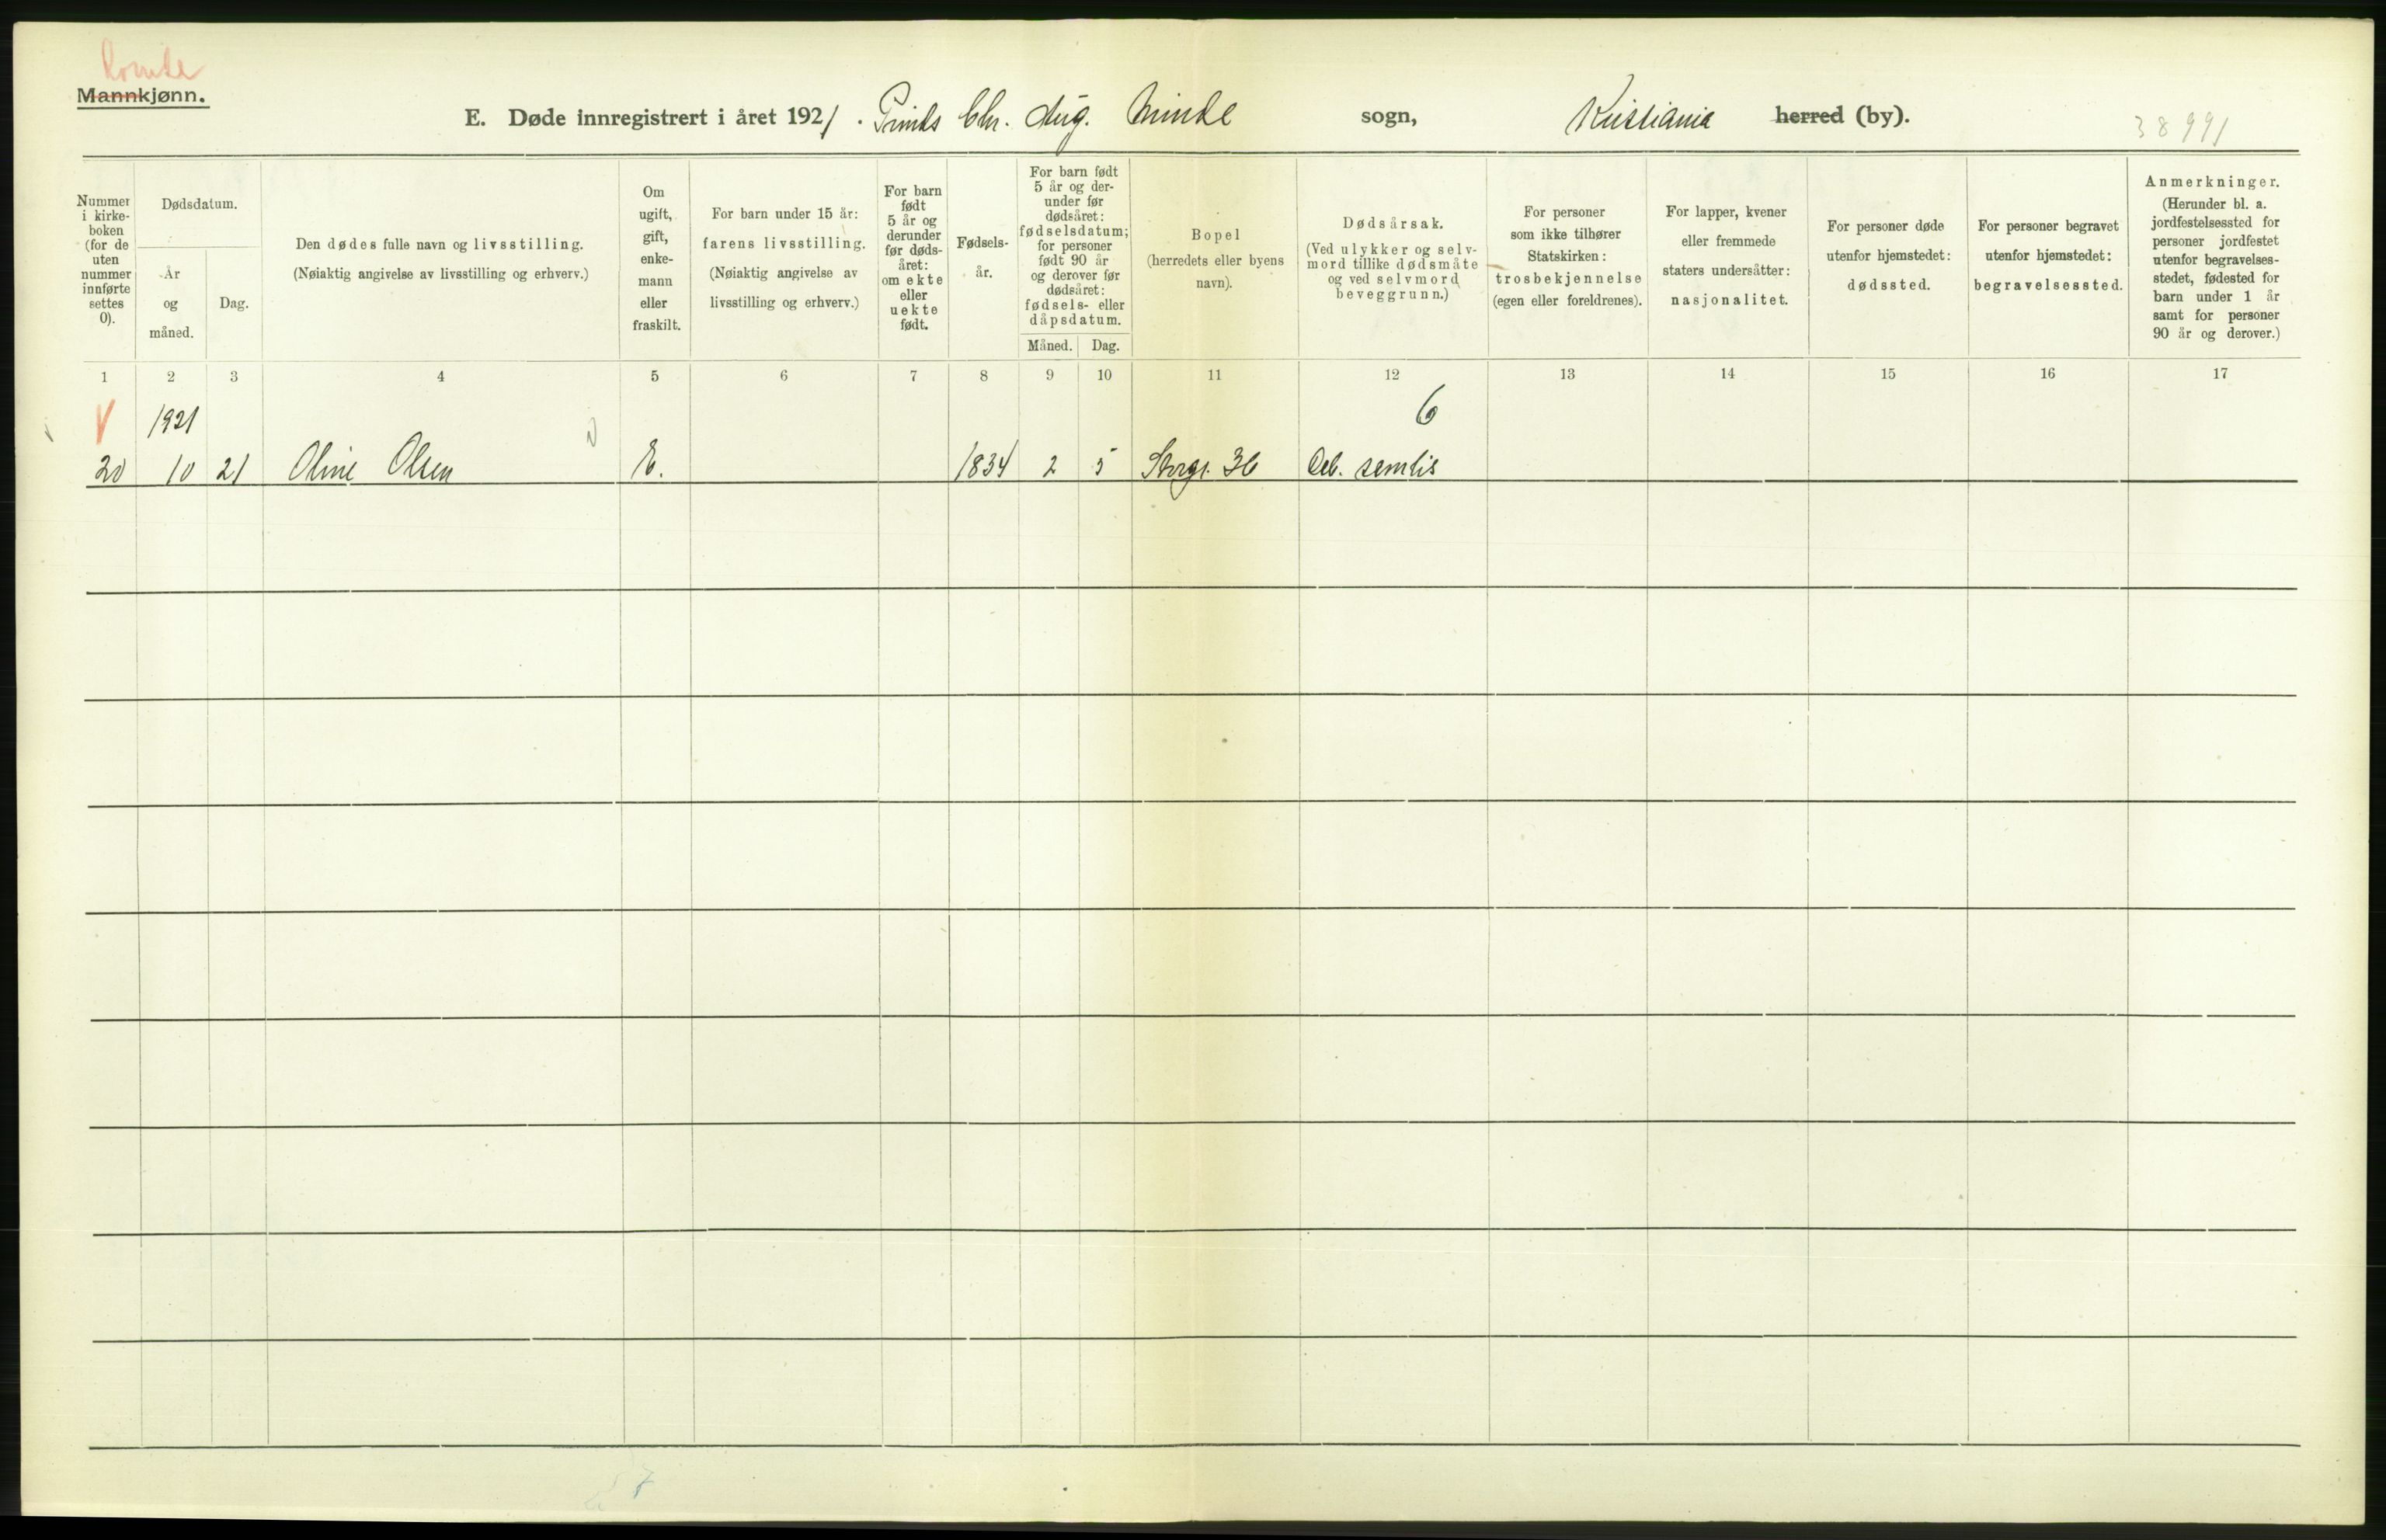 Kvinne
Mannkjønn.
E. Døde innregistrert i året 1921. Prinds Chr. Aug. Minde sogn, Kristiania herred (by).
38991
Nummer i kirke- boken (for de uten nummer innførte settes 0).
Dødsdatum.
År og måned.
Dag.
Den dødes fulle navn og livsstilling.
(Nøiaktig angivelse av livsstilling og erhverv.)
Om ugift, gift, enke- mann eller fraskilt.
For barn under 15 år: farens livsstilling.
(Nøiaktig angivelse av livsstilling og erhverv.)
For barn født 5 år og derunder før døds- året: om ekte eller uekte født.
Fødsels- år.
For barn født 5 år og der- under før dødsåret: fødselsdatum; for personer født 90 år og derover før dødsåret: fødsels- eller dåpsdatum.
Måned. Dag.
Bopel
(herredets eller byens navn).
Dødsårsak.
(Ved ulykker og selv- mord tillike dødsmåte og ved selvmord beveggrunn.)
For personer som ikke tilhører Statskirken: trosbekjennelse (egen eller foreldrenes).
For lapper, kvener eller fremmede staters undersåtter: nasjonalitet.
For personer døde utenfor hjemstedet: dødssted.
For personer begravet utenfor hjemstedet: begravelsessted.
Anmerkninger.
(Herunder bl. a. jordfestelsessted for personer jordfestet utenfor begravelses- stedet, fødested for barn under 1 år samt for personer 90 år og derover.)
1 2 3 4 5 6 7 8 9 10 11 12 13 14 15 16 17
1921 6
20 10 21 Oline Olsen E. 1834 2 5 Storgt. 36 Deb. senilis